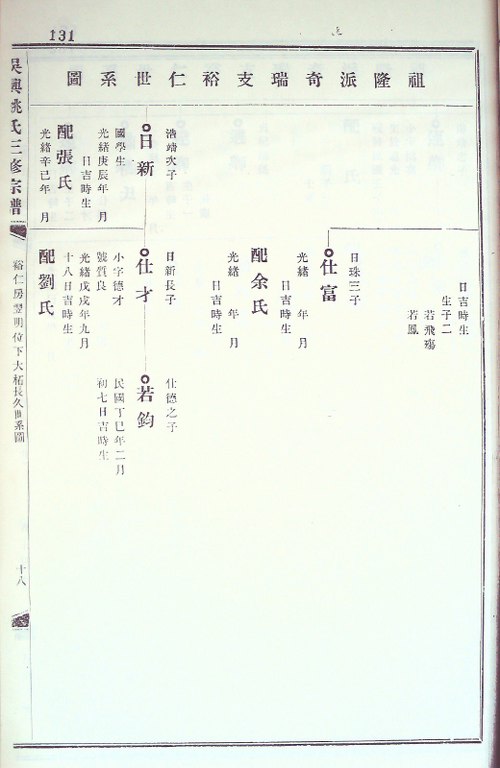 131
祖隆派奇瑞支裕仁世系圖
吳興姚氏三修宗譜
裕仁房翌明位下大柘長久世系圖
十八
日吉時生
生子二
若飛殤
若鳳
日珠三子
仕富
光緒 年 月
日吉時生
配余氏
光緒 年 月
日吉時生
浩靖次子
日新
國學生
光緒庚辰年 月
日吉時生
配張氏
光緒辛巳年 月
日吉時生
日新長子
仕才
小字德才
號質良
光緒戊戌年九月
十八日吉時生
配劉氏
仕德之子
若鈞
民國丁巳年二月
初七日吉時生